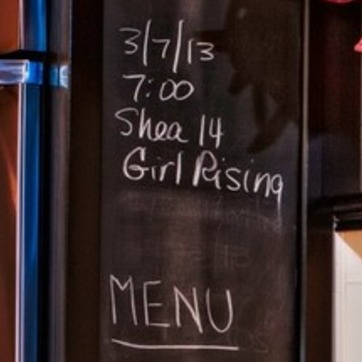 3/7/13
7:00
Shea 14
Girl Rising
MENU